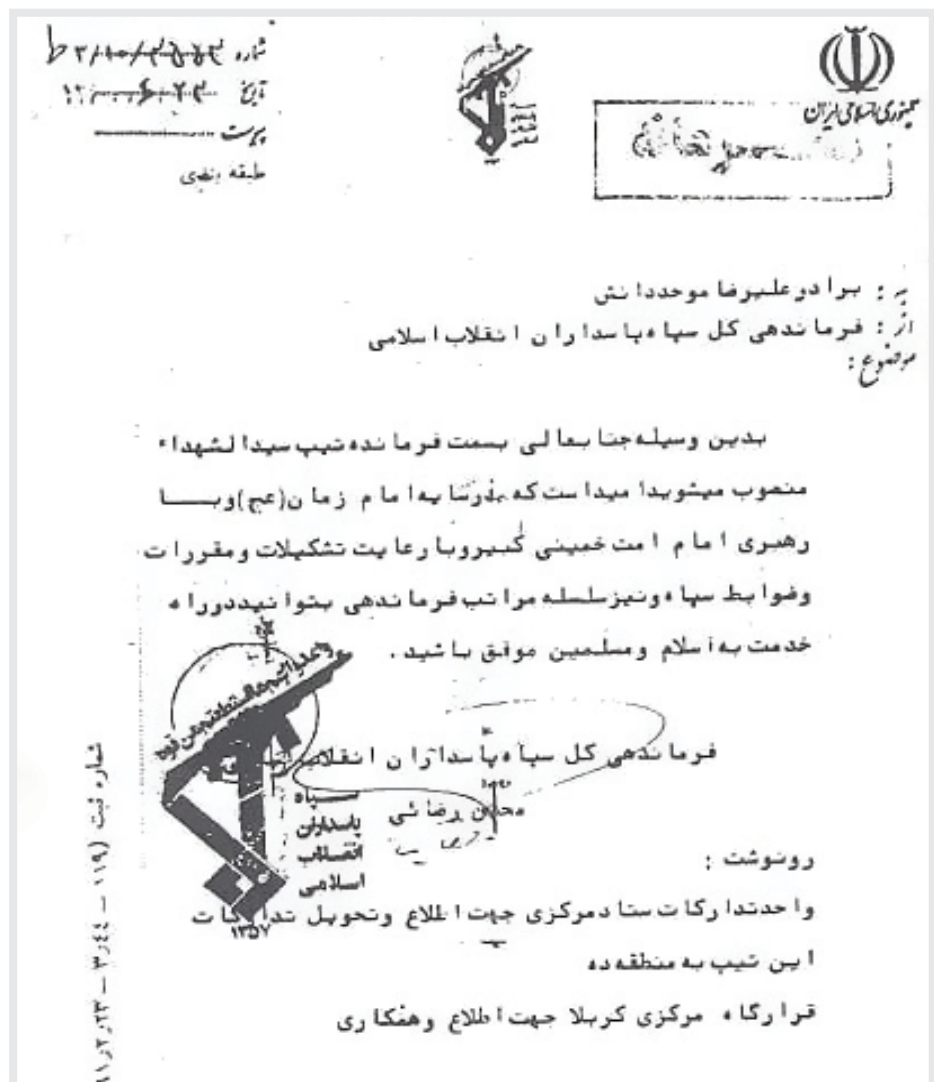 جمهوری اسلامی ایران
شماره
تاریخ
پیوست
طبقه بندی
به : برادر علیرضا موحد دانش
از : فرماندهی کل سپاه پاسداران انقلاب اسلامی
موضوع :
بدین وسیله جنابعالی بسمت فرمانده تیپ سیدالشهداء
منصوب میشوید امید است که در سایه امام زمان(عج) و با
رهبری امام امت خمینی کبیر و با رعایت تشکیلات و مقررات
وضوابط سپاه و نیز سلسله مراتب فرماندهی بتوانید در راه
خدمت به اسلام و مسلمین موفق باشید .
فرماندهی کل سپاه پاسداران انقلاب
محسن رضائی
سپاه
پاسداران
انقلاب
اسلامی
۱۳۵۷
رونوشت :
واحد تدارکات ستاد مرکزی جهت اطلاع و تحویل تدارکات
این تیپ به منطقه ده
قرارگاه مرکزی کربلا جهت اطلاع و همکاری
شماره ثبت (۱۱۹ – ۳٫۴۴ – ۲۳٫۲٫